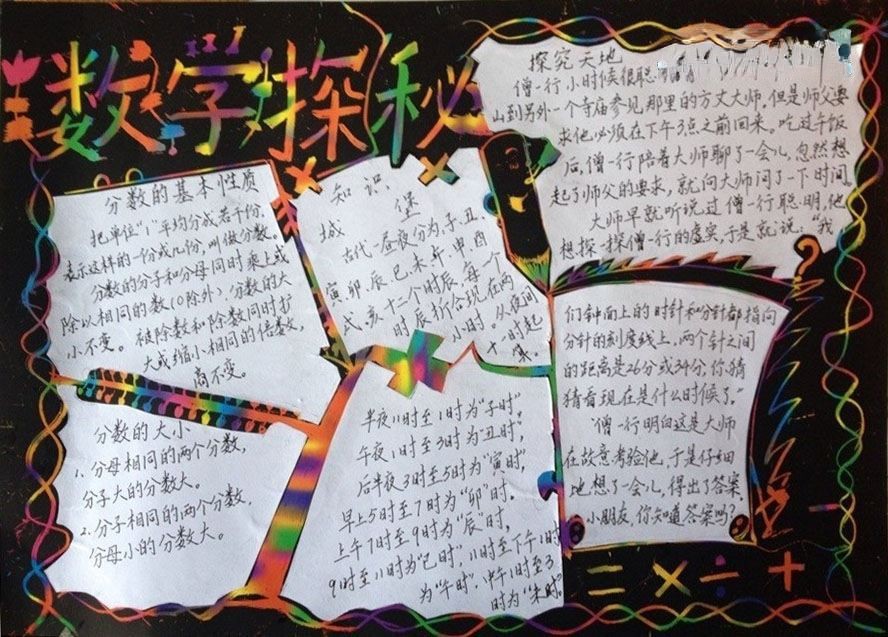 数学探秘
分数的基本性质
把单位"1"平均分成若干份,
表示这样的一份或几份,叫做分数
分数的分子和分母同时乘上或
除以相同的数(0除外),分数的大
小不变。被除数和除数同时扩
大或缩小相同的倍数,
商不变。
分数的大小
1.分母相同的两个分数,
分子大的分数大。
2.分子相同的两个分数,
分母小的分数大。
知识
城堡
古代一昼夜分为,子、丑、
寅、卯、辰、巳、未、午、申、酉
戌、亥十二个时辰,每一个
时辰折合现在两
小时。从夜间
十一时起
算。
半夜11时至1时为"子时",
午夜1时至3时为"丑时",
后半夜3时至5时为"寅时",
早上5时至7时为"卯"时。
上午7时至9时为"辰"时,
9时至11时为"巳时",11时至下午1时
为"午时",1时至3
时为"未时。
探究天地
僧一行小时候很聪
山到另外一个寺庙参见那里的方丈大师,但是师父要
求他必须在下午3点之前回来。吃过午饭
后,僧一行陪着大师聊了一会儿,忽然想
起了师父的要求,就向大师问了一下时间。
大师早就听说过僧一行聪明,他
想探一探僧一行的虚实,于是就说:"我
们钟面上的时针和分针都指向
分针的刻度线上,两个针之间
的距离是26分或34分,你猜
猜看现在是什么时候了。"
僧一行明白这是大师
在故意考验他,于是仔细
地想了一会儿,得出了答案
小朋友,你知道答案吗?
= × ÷ +